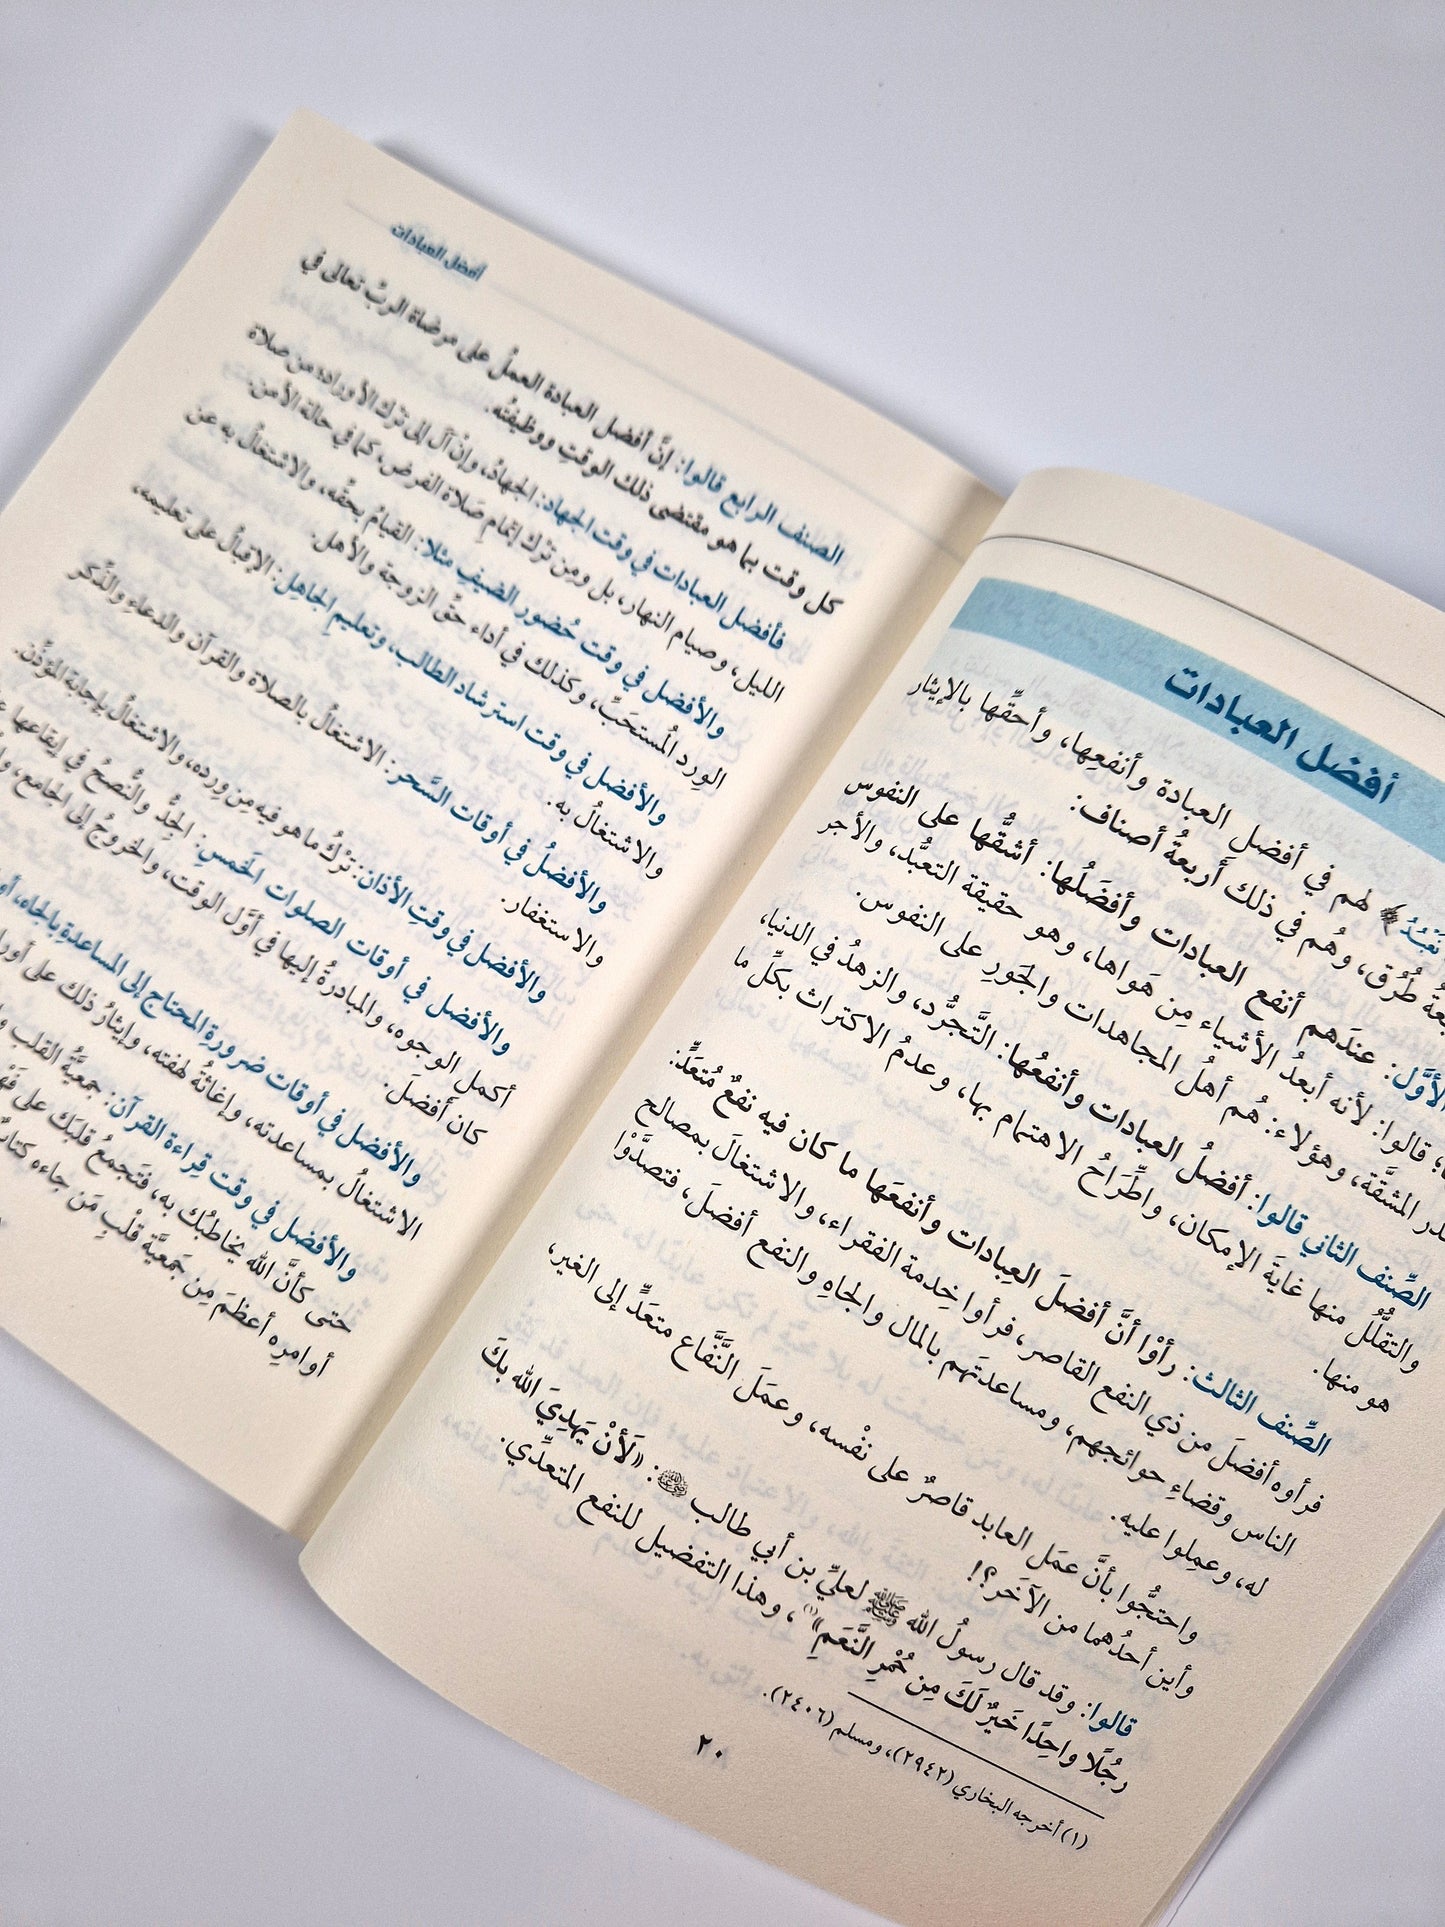 أفضل العبادات
نَعْبُدُ ﴾ لهم في أفضل العبادة وأنفعِها، وأحقِّها بالإيثار
طُرُق، وهُم في ذلك أربعةُ أصناف:
الأوَّل: عندَهم أنفع العبادات وأفضَلُها: أشقُّها على النفوس
قالوا: لأنه أبعدُ الأشياء مِن هَواها، وهو حقيقة التعبُّد، والأجر
المشقَّة، وهؤلاء: هُم أهلُ المجاهدات والجَورِ على النفوس.
الصِّنف الثاني قالوا: أفضلُ العبادات وأنفعُها: التَّجرُّد، والزهدُ في الدنيا،
والتقلُّلُ منها غايةَ الإمكان، واطِّرَاحُ الاهتمام بها، وعدمُ الاكتراث بكلِّ ما
هو منها.
الصِّنف الثالث: رأوْا أنَّ أفضلَ العِبادات وأنفعَها ما كان فيه نفعٌ مُتعَدٍّ:
فرأوه أفضلَ من ذي النفع القاصر، فرأوا خِدمة الفقراء، والاشتغالَ بمصالح
الناس وقضاءِ حوائجهم، ومساعدتَهم بالمال والجاهِ والنفع أفضلَ، فتصدَّوْا
له، وعمِلوا عليه.
واحتجُّوا بأنَّ عمَل العابد قاصرٌ على نفْسه، وعمَلَ النَّفَّاع متعَدٍّ إلى الغير،
وأين أحدُهما من الآخَر؟!
قالوا: وقد قال رسولُ الله ﷺ لعليِّ بن أبي طالب رضي الله عنه: «لَأَنْ يَهدِيَ الله بكَ
رجُلًا واحِدًا خَيرٌ لَكَ مِن حُمْرِ النَّعَمِ»(١)، وهذا التفضيل للنفع المتعدِّي.
(١) أخرجه البخاري (٢٩٤٢)، ومسلم (٢٤٠٦).
٢٠
أفضل العبادات
الصنف الرابع قالوا: إنَّ أفضل العبادة العملُ على مرضاة الربِّ تعالى في
كل وقت بما هو مقتضى ذلك الوقتِ ووظيفتُه.
فأفضل العبادات في وقت الجهاد: الجهادُ، وإنْ آل إلى ترْك الأوراد؛ من صلاة
الليل، وصيام النهار، بل ومِن ترْك إتمامِ صَلاة الفرض، كما في حالة الأمن.
والأفضل في وقت حُضور الضيفِ مثلا: القيامُ بحقِّه، والاشتغالُ به عن
الوِرد المُستحَبِّ، وكذلك في أداء حقِّ الزوجة والأهل.
والأفضل في وقت استرشاد الطالب، وتعليمِ الجاهِل: الإقبالُ على تعليمه،
والاشتغالُ به.
والأفضلُ في أوقات السَّحر: الاشتغالُ بالصلاة والقرآن والدعاء والذِّكر
والاستغفار.
والأفضل في وقتِ الأذان: ترْكُ ما هو فيه مِن وِرده، والاشتغالُ بإجابة المؤذِّن.
والأفضل في أوقات الصلوات الخَمسِ: الجِدُّ والنُّصحُ في إيقاعها
أكملِ الوجوه، والمبادرةُ إليها في أوَّل الوقت، والخروجُ إلى الجامع،
كان أفضلَ.
والأفضل في أوقات ضرورة المحتاج إلى المساعدة بالجاه،
الاشتغالُ بمساعدته، وإغاثةُ لهفته، وإيثارُ ذلك على
والأفضل في وقت قِراءة القرآن: جمعيَّةُ القلب
حتى كأنَّ الله يخاطبُك به، فتَجمعُ قلبَك على
أوامرِه أعظمَ مِن جَمعيَّة قلْبِ مَن جاءه